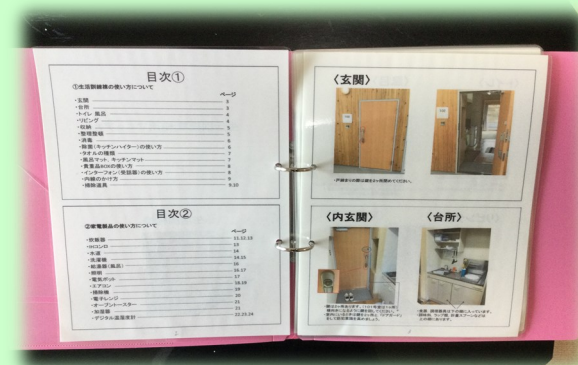 目次①
①生活訓練棟の使い方について
ページ
・玄関 3
・台所 3
・トイレ 風呂 4
・リビング 4
・収納 5
・整理整頓 5
・消毒 6
・除菌(キッチンハイター)の使い方 6
・タオルの種類 7
・風呂マット、キッチンマット 7
・貴重品BOXの使い方 8
・インターフォン(受話器)の使い方 8
・内線のかけ方 9
・掃除道具 9,10
目次②
②家電製品の使い方について
ページ
・炊飯器 11,12,13
・IHコンロ 13
・水道 14
・洗濯機 14,15
・給湯器(風呂) 16
・照明 16,17
・電気ポット 17
・エアコン 18,19
・掃除機 19
・電子レンジ 20
・オーブントースター 21
・加湿器 21
・デジタル温湿度計 22,23,24
〈玄関〉
〈内玄関〉
〈台所〉